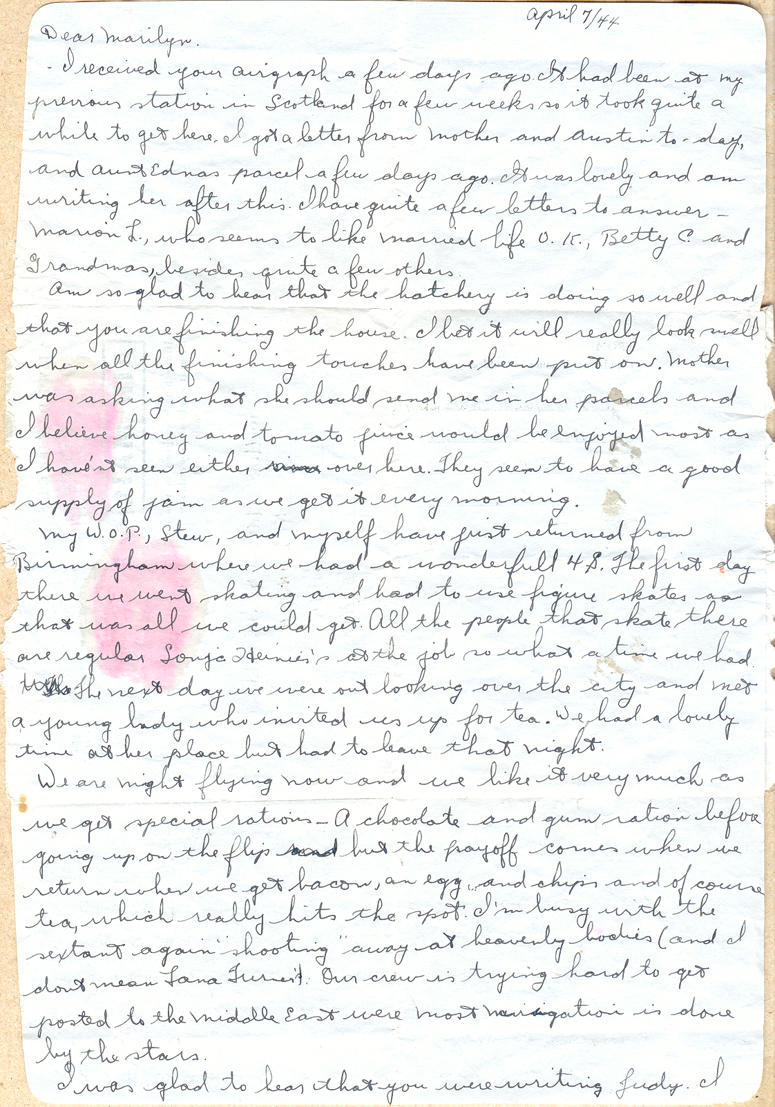 April 7/44
Dear Marilyn.
- I received your airgraph a few days ago. It had been at my
previous station in Scotland for a few weeks so it took quite a
while to get here. I got a letter from Mother and Austin to-day,
and aunt Ednas parcel a few days ago. It was lovely and am
writing her after this. I have quite a few letters to answer –
Marion L., who seems to like married life O.K., Betty C. and
Grandmas, besides quite a few others.
Am so glad to hear that the hatchery is doing so well and
that you are finishing the house. I bet it will really look swell
when all the finishing touches have been put on. Mother
was asking what she should send me in her parcels and
I believe honey and tomato juice would be enjoyed most as
I have'nt seen either over here. They seem to have a good
supply of jam as we get it every morning.
My W.O.P., Stew, and myself have just returned from
Birmingham where we had a wonderfull 48. The first day
there we went skating and had to use figure skates as
that was all we could get. All the people that skate there
are regular Sonja Heinies's at the job so what a time we had.
The next day we were out looking over the city and met
a young lady who invited us up for tea. We had a lovely
time at her place but had to leave that night.
We are night flying now and we like it very much as
we get special rations – A chocolate and gum ration before
going up on the flip but the payoff comes when we
return when we get bacon, an egg, and chips and of course
tea, which really hits the spot. I'm busy with the
sextant again "shooting" away at heavenly bodies (and I
dont mean Lana Turner's). Our crew is trying hard to get
posted to the Middle East were most navigation is done
by the stars.
I was glad to hear that you were writing Judy. I